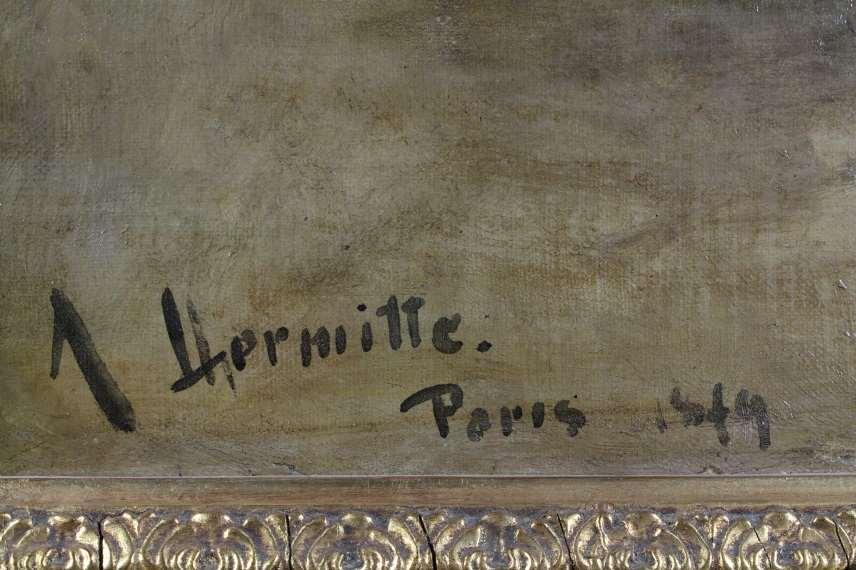 Lhermitte.
Paris 1879